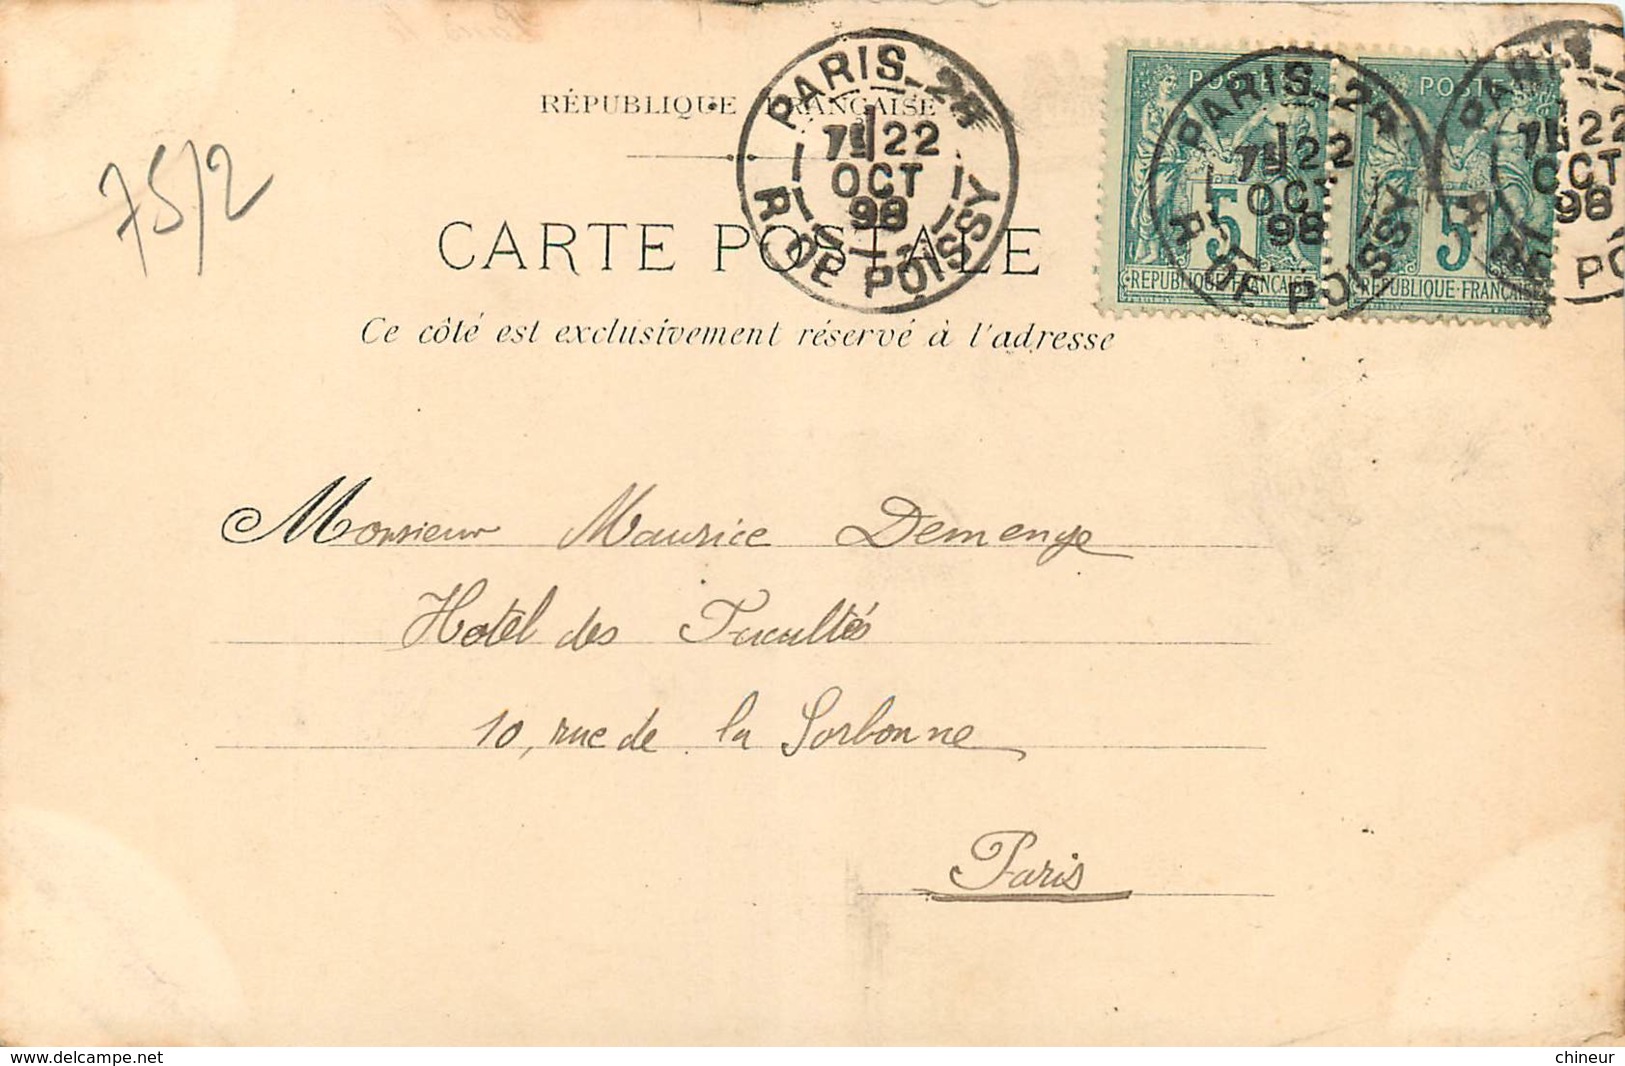 RÉPUBLIQUE FRANÇAISE
PARIS_24
7E 22
OCT
98
R. DE POISSY
POSTES
5
REPUBLIQUE-FRANÇAISE
PARIS_24
7E 22
OCT
98
R. DE POISSY
POSTES
5
REPUBLIQUE-FRANÇAISE
7E 22
OCT
98
75/2
CARTE POSTALE
Ce côté est exclusivement réservé à l'adresse
Monsieur Maurice Demenge
Hotel des Facultés
10, rue de la Sorbonne
Paris
www.delcampe.net
chineur